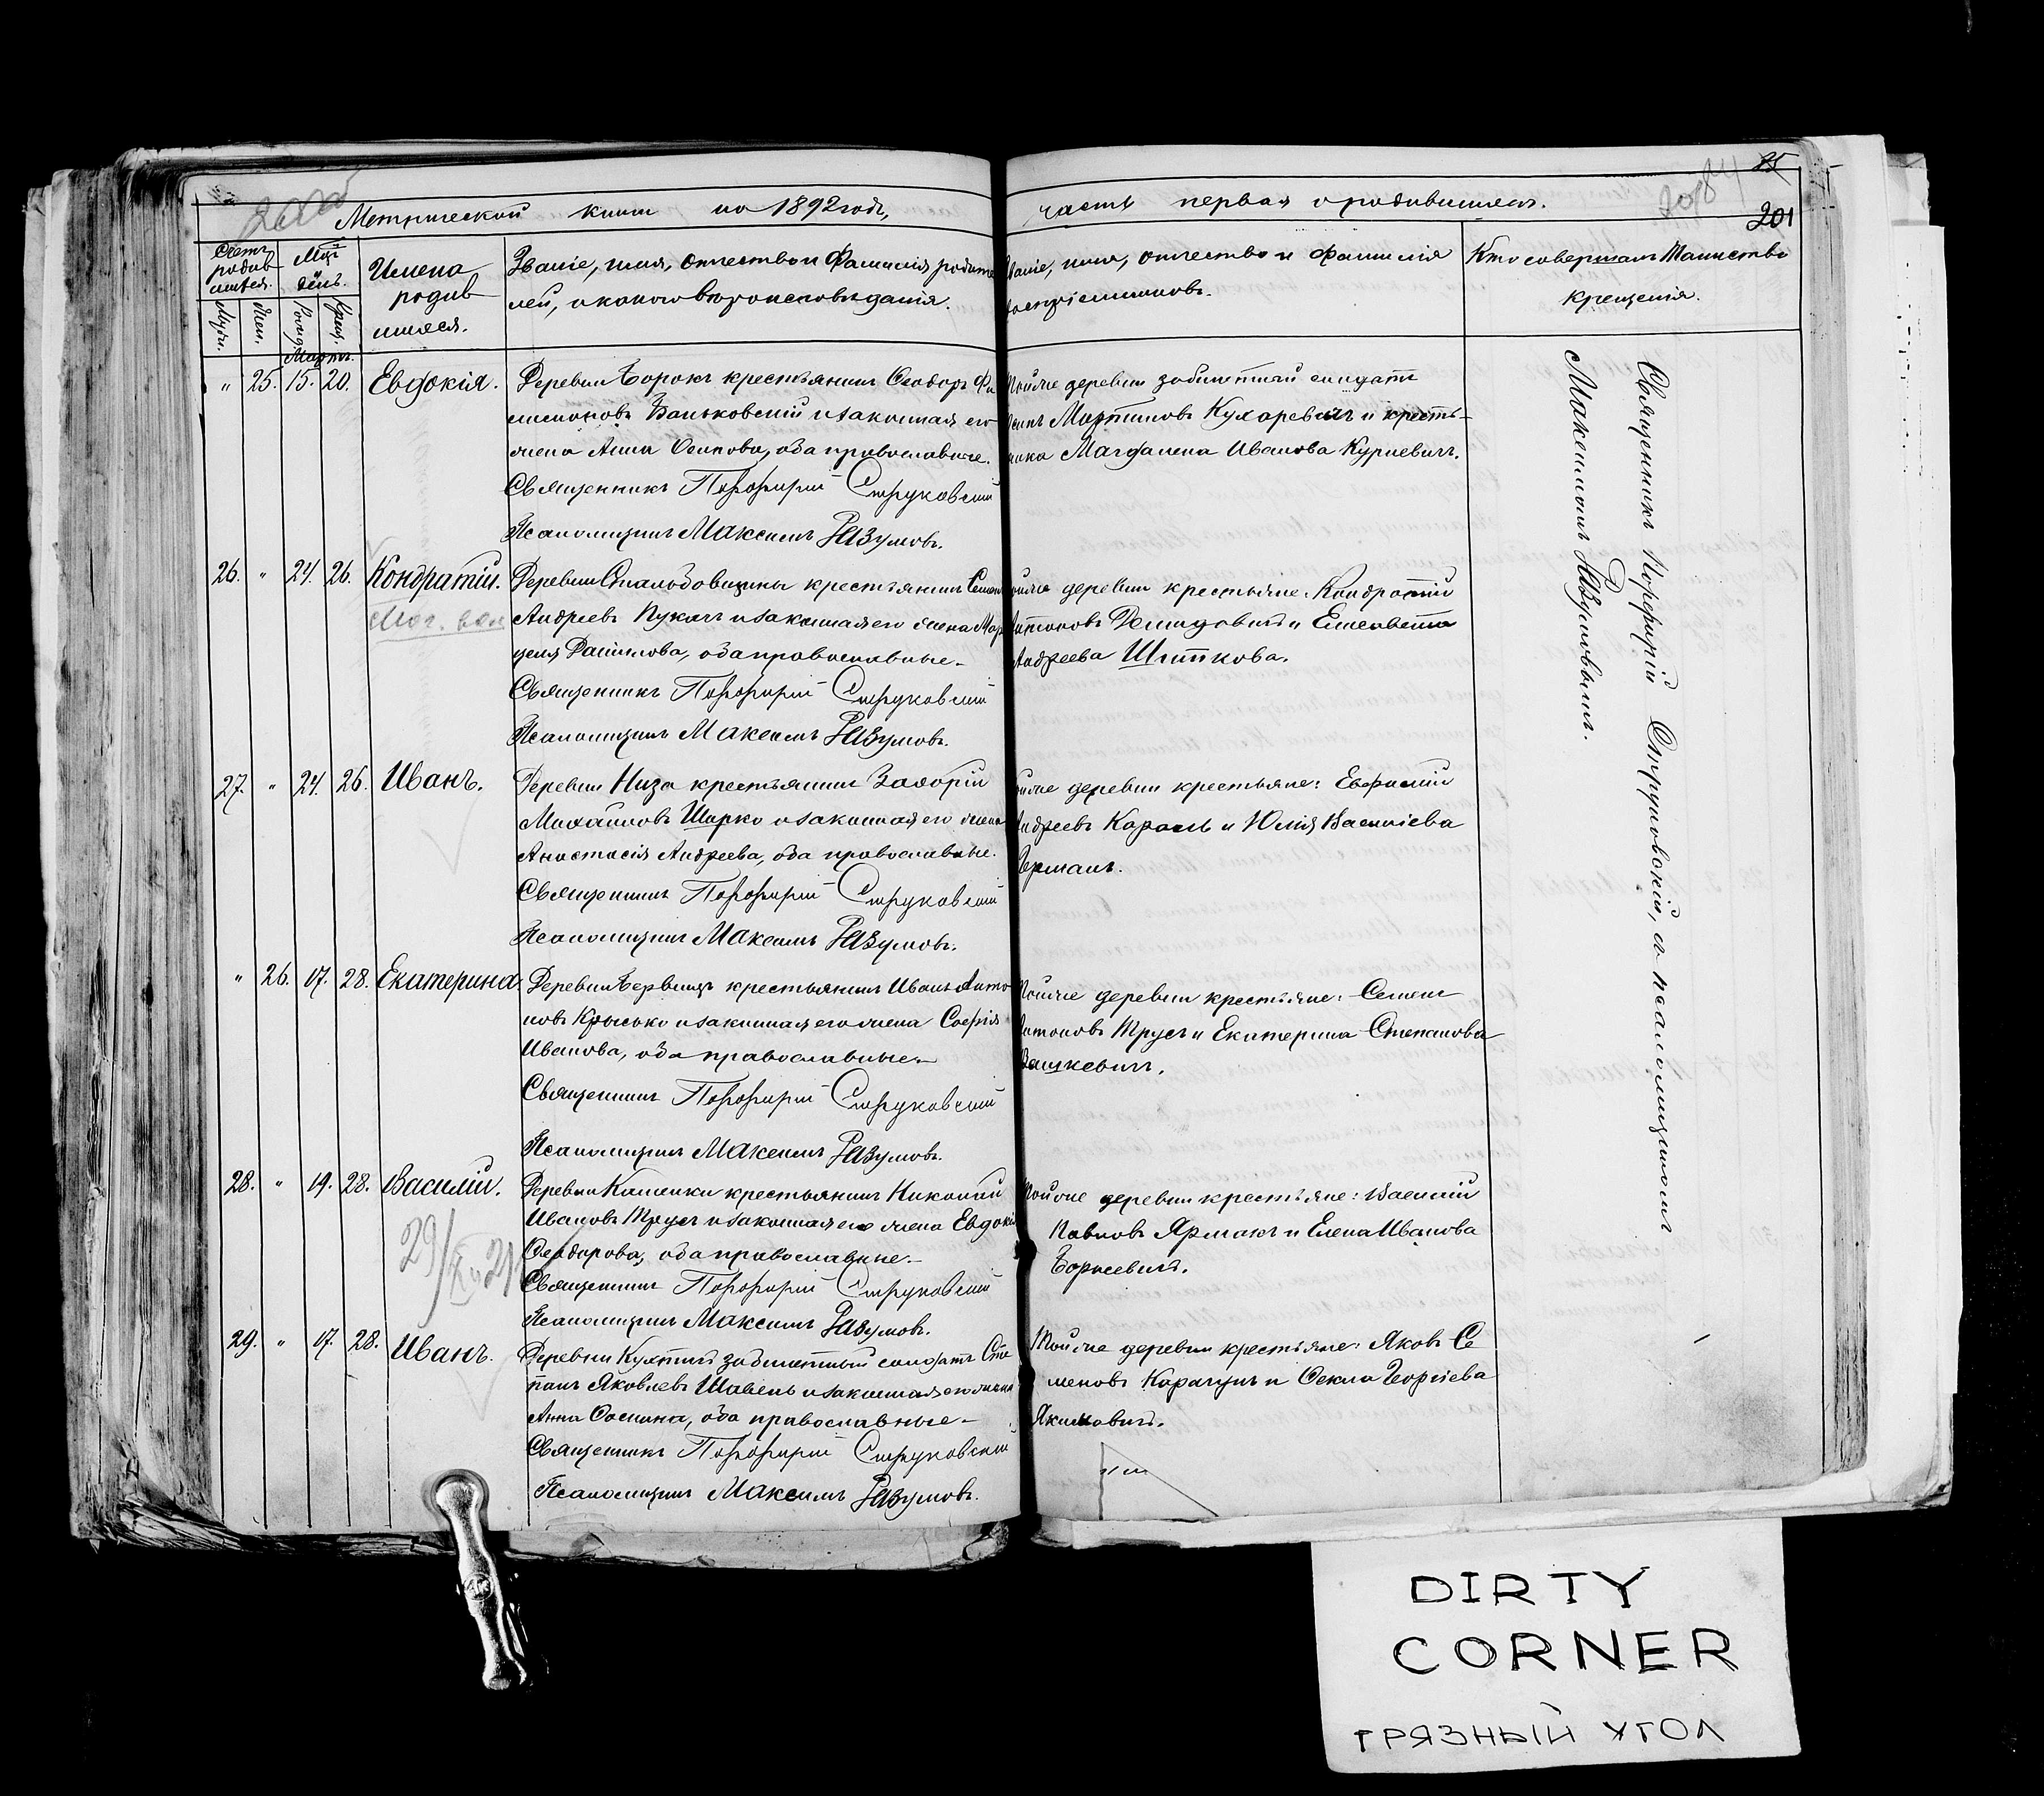 Метрической книги на 1892 годъ,
часть первая о родившихся.
85
201
Счетъ родив-
шихся.
Мѣс.
день.
Имена
родив
шихся.
Званіе, имя, отчество и Фамилія родите
лей, и какого вѣроисповѣданія.
Званіе, имя, отчество и Фамилія
воспріемниковъ.
Кто совершалъ Таинство
крещенія.
Муж.
Жен.
Рожд.
Крещ.
Мартъ.
" 25. 15. 20. Евдокія.
Деревни Борокъ крестьянинъ Ѳеодоръ Фи
лимоновъ Баньковскій и законная его
жена Анна Осипова, оба православные.
Священникъ Порфирій Струковскій
Псаломщикъ Максимъ Разумовъ.
Тойже деревни забилетный солдатъ
Мартиновъ Кухаревичъ и кресть-
янка Магдалена Иванова Курневичъ.
26. " 24. 26. Кондратій.
Деревни крестьянинъ Семенъ
Андреевъ Пукачъ и законная его жена Мар
целя Данилова, оба православные.
Священникъ Порфирій Струковскій
Псаломщикъ Максимъ Разумовъ.
Тойже деревни крестьяне: Кондратій
Антоновъ Демидовичъ и Елисавета
Андреева Шиткова.
27. " 24. 26. Иванъ.
Деревни Низа крестьянинъ Захарій
Михайловъ Шарко и законная его жена
Анастасія Андреева, оба православные.
Священникъ Порфирій Струковскій
Псаломщикъ Максимъ Разумовъ.
Тойже деревни крестьяне: Евфимій
Андреевъ Карась и Юлія Василіева
Германъ.
" 26. 17. 28. Екатерина.
Деревни крестьянинъ Иванъ Анто
новъ Крысько и законная его жена Софія
Иванова, оба православные.
Священникъ Порфирій Струковскій
Псаломщикъ Максимъ Разумовъ.
Тойже деревни крестьяне: Семенъ
Антоновъ Трусъ и Екатерина Степанова
Вашкевичъ.
28. " 19. 28. Василій.
Деревни Кашенки крестьянинъ Николай
Ивановъ Трусъ и законная его жена Евдокія
Ѳеодорова, оба православные.
Священникъ Порфирій Струковскій
Псаломщикъ Максимъ Разумовъ.
Тойже деревни крестьяне: Василій
Павловъ Ярмакъ и Елена Иванова
Борисевичъ.
29. " 17. 28. Иванъ.
Деревни забилетный солдатъ Сте
панъ Яковлевъ Шавель и законная его жена
Анна Осипова, оба православные.
Священникъ Порфирій Струковскій
Псаломщикъ Максимъ Разумовъ.
Тойже деревни крестьяне: Яковъ Се
меновъ Карачунъ и Ѳекла Георгіева
Якимовичъ.
Священникъ Порфирій Струковскій, съ псаломщикомъ
Максимомъ Разумовымъ.
DIRTY
CORNER
ГРЯЗНЫЙ УГОЛ